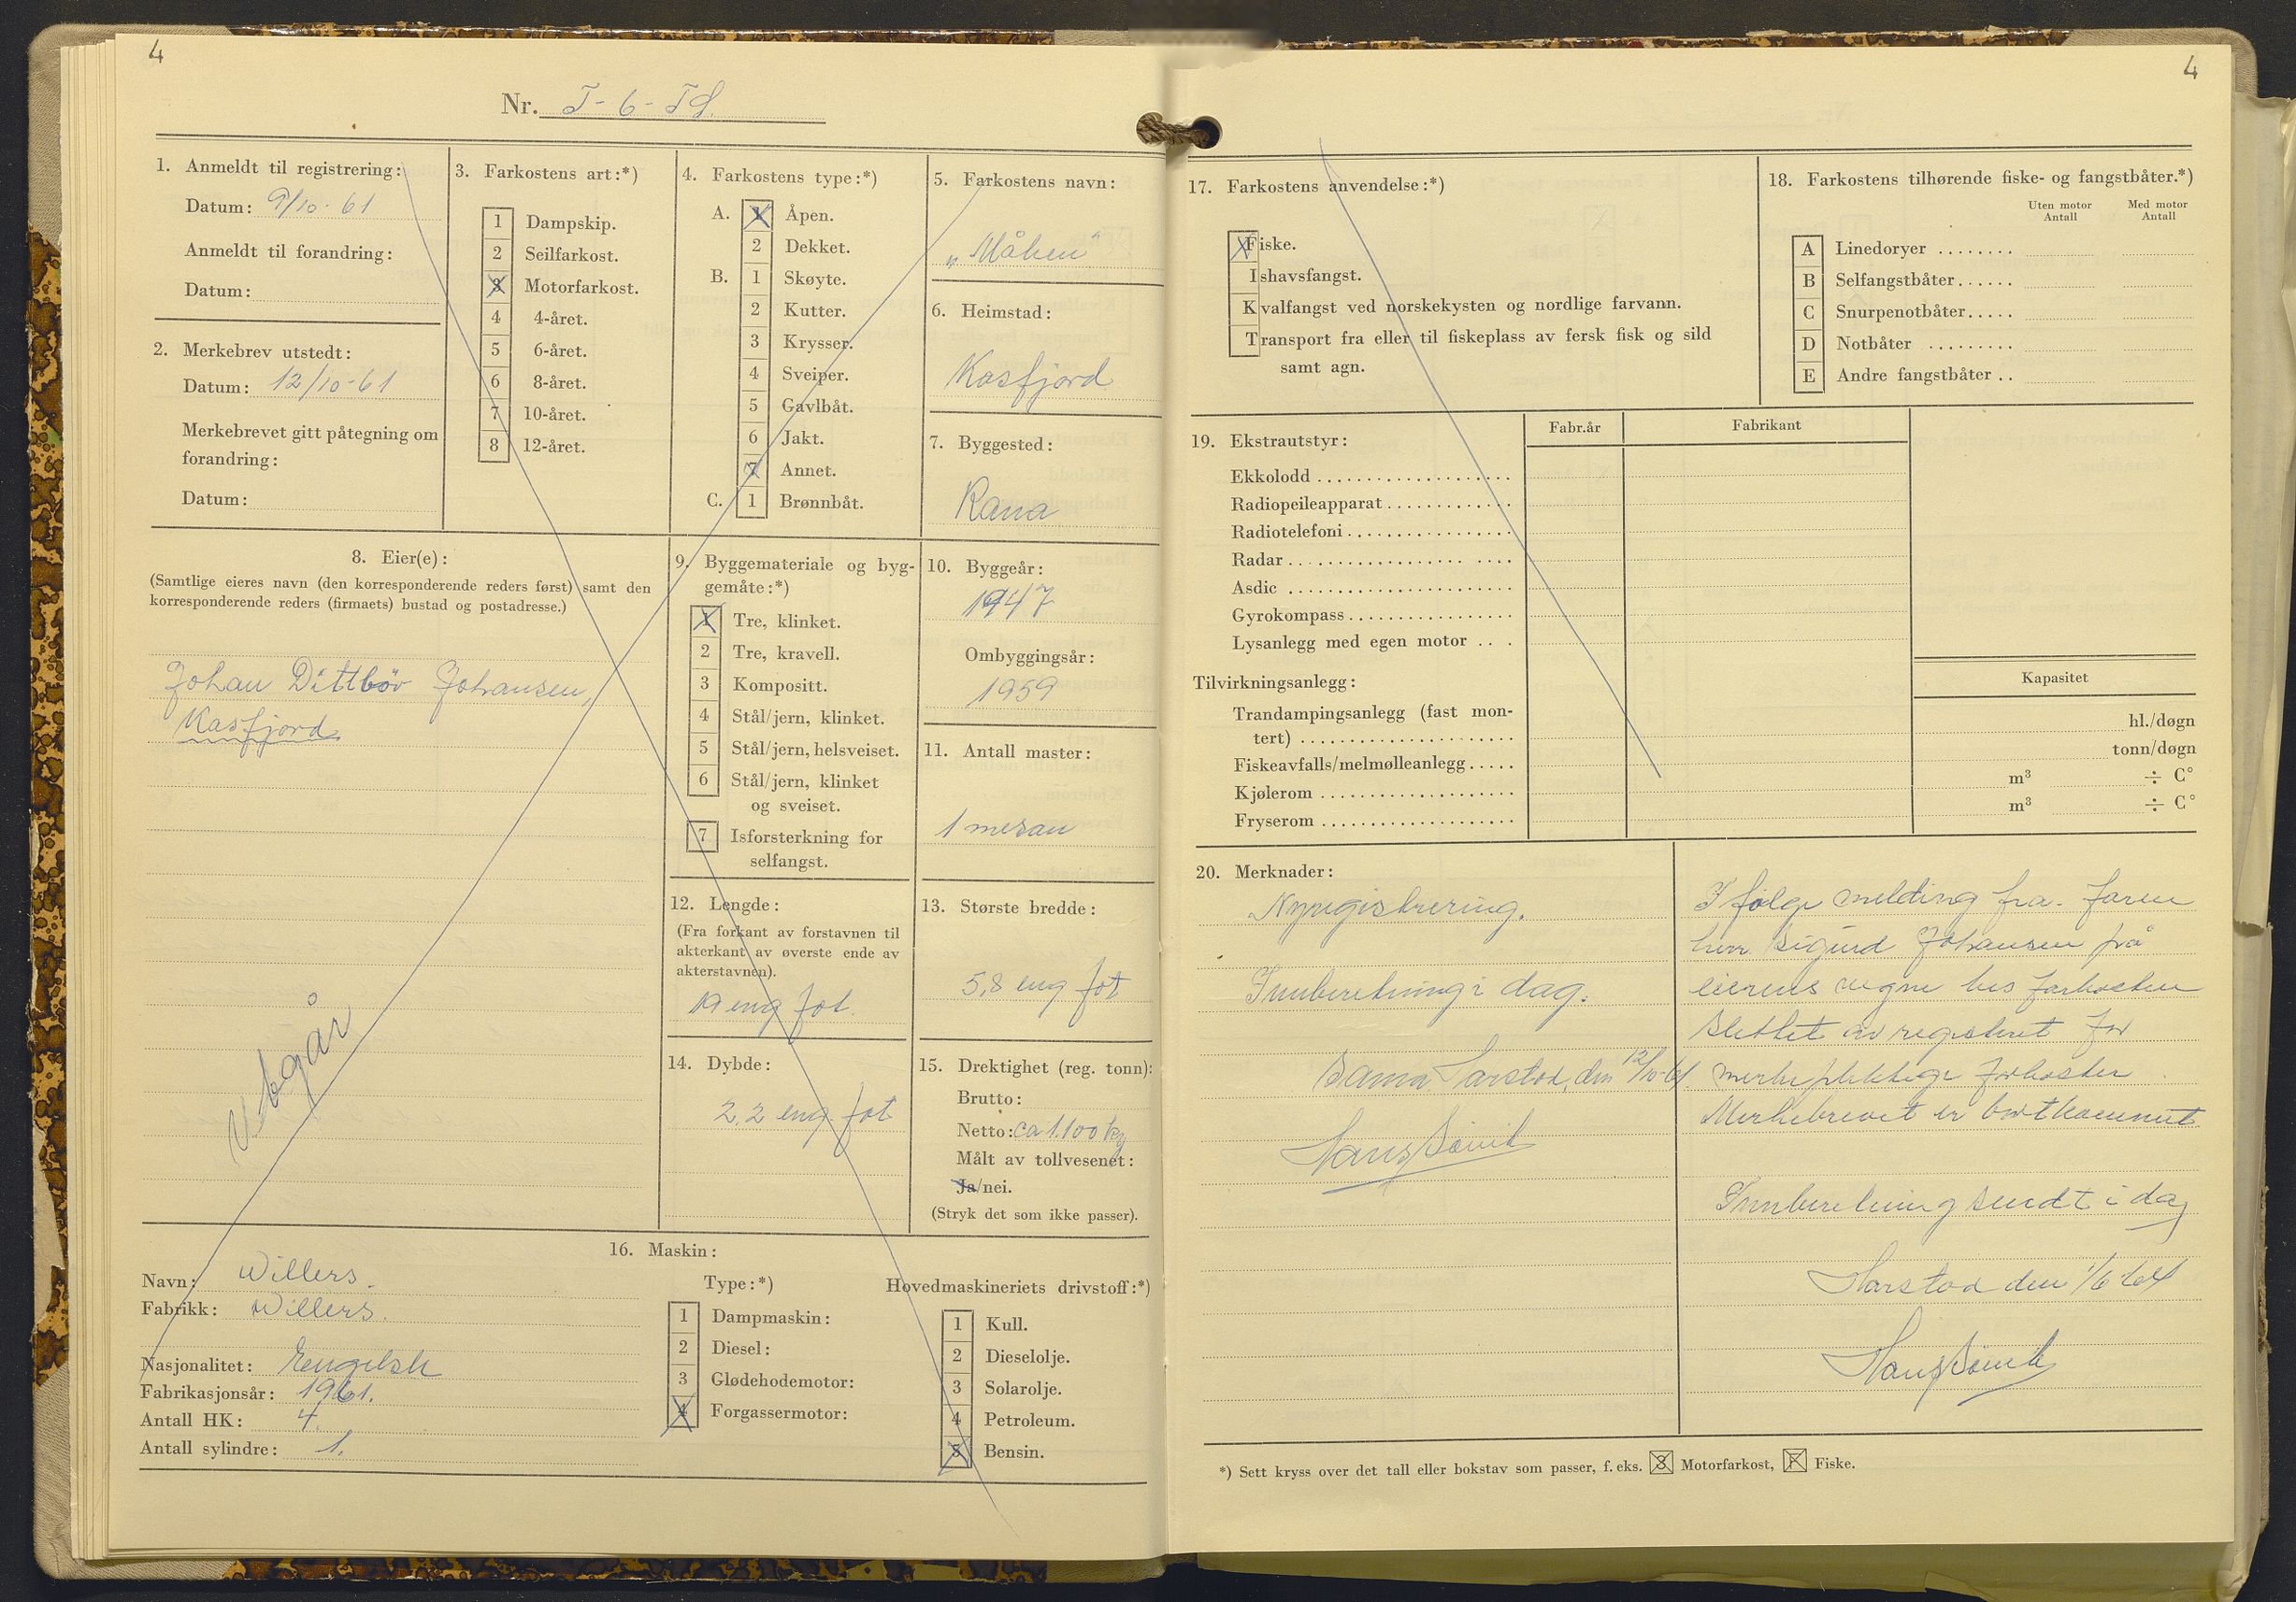 4
Nr. T-6-TS.
1. Anmeldt til registrering:
Datum: 9/10-61
Anmeldt til forandring:
Datum:
2. Merkebrev utstedt:
Datum: 12/10-61
Merkebrevet gitt påtegning om
forandring:
Datum:
3. Farkostens art:*)
1 Dampskip.
2 Seilfarkost.
3 Motorfarkost.
4 4-året.
5 6-året.
6 8-året.
7 10-året.
8 12-året.
4. Farkostens type:*)
A. 1 Åpen.
2 Dekket.
B. 1 Skøyte.
2 Kutter.
3 Krysser.
4 Sveiper.
5 Gavlbåt.
6 Jakt.
7 Annet.
C. 1 Brønnbåt.
5. Farkostens navn:
"Måken"
6. Heimstad:
Kasfjord
7. Byggested:
Rana
8. Eier(e):
(Samtlige eieres navn (den korresponderende reders først) samt den
korresponderende reders (firmaets) bustad og postadresse.)
Johan Dittbøv Johansen,
Kasfjord.
Utgår
9. Byggemateriale og byg-
gemåte:*)
1 Tre, klinket.
2 Tre, kravell.
3 Kompositt.
4 Stål/jern, klinket.
5 Stål/jern, helsveiset.
6 Stål/jern, klinket
og sveiset.
7 Isforsterkning for
selfangst.
10. Byggeår:
1947
Ombyggingsår:
1959
11. Antall master:
1 mesan
12. Lengde:
(Fra forkant av forstavnen til
akterkant av øverste ende av
akterstavnen).
19 eng fot.
13. Største bredde:
5,8 eng fot
14. Dybde:
2,2 eng. fot
15. Drektighet (reg. tonn):
Brutto:
Netto: ca 1.100 kg
Målt av tollvesenet:
Ja/nei.
(Stryk det som ikke passer).
16. Maskin:
Navn: Willers.
Fabrikk: Willers.
Nasjonalitet: Engelsk
Fabrikasjonsår: 1961.
Antall HK: 4.
Antall sylindre: 1.
Type:*)
1 Dampmaskin:
2 Diesel:
3 Glødehodemotor:
4 Forgassermotor:
Hovedmaskineriets drivstoff:*)
1 Kull.
2 Dieselolje.
3 Solarolje.
4 Petroleum.
5 Bensin.
4
17. Farkostens anvendelse:*)
Fiske.
Ishavsfangst.
Kvalfangst ved norskekysten og nordlige farvann.
Transport fra eller til fiskeplass av fersk fisk og sild
samt agn.
18. Farkostens tilhørende fiske- og fangstbåter.*)
Uten motor Antall
Med motor Antall
A Linedoryer ........
B Selfangstbåter......
C Snurpenotbåter.....
D Notbåter .........
E Andre fangstbåter ..
19. Ekstrautstyr:
Fabr.år
Fabrikant
Ekkolodd
Radiopeileapparat
Radiotelefoni
Radar
Asdic
Gyrokompass
Lysanlegg med egen motor
Tilvirkningsanlegg:
Kapasitet
Trandampingsanlegg (fast mon-
tert) hl./døgn
Fiskeavfalls/melmølleanlegg tonn/døgn
Kjølerom m³ ÷ C°
Fryserom m³ ÷ C°
20. Merknader:
Nyregistrering.
Innberetning i dag.
Harstad, den 12/10-61
Hans Søvik
I følge melding fra. faren
herr Sigurd Johansen på
eierens vegne bes farkosten
slettet av registeret for
merkepliktige farkoster
Merkebrevet er bortkommet
Innberetning sendt i dag
Harstad den 1/6 64
Hans Søvik
*) Sett kryss over det tall eller bokstav som passer, f. eks. 3 Motorfarkost, F Fiske.